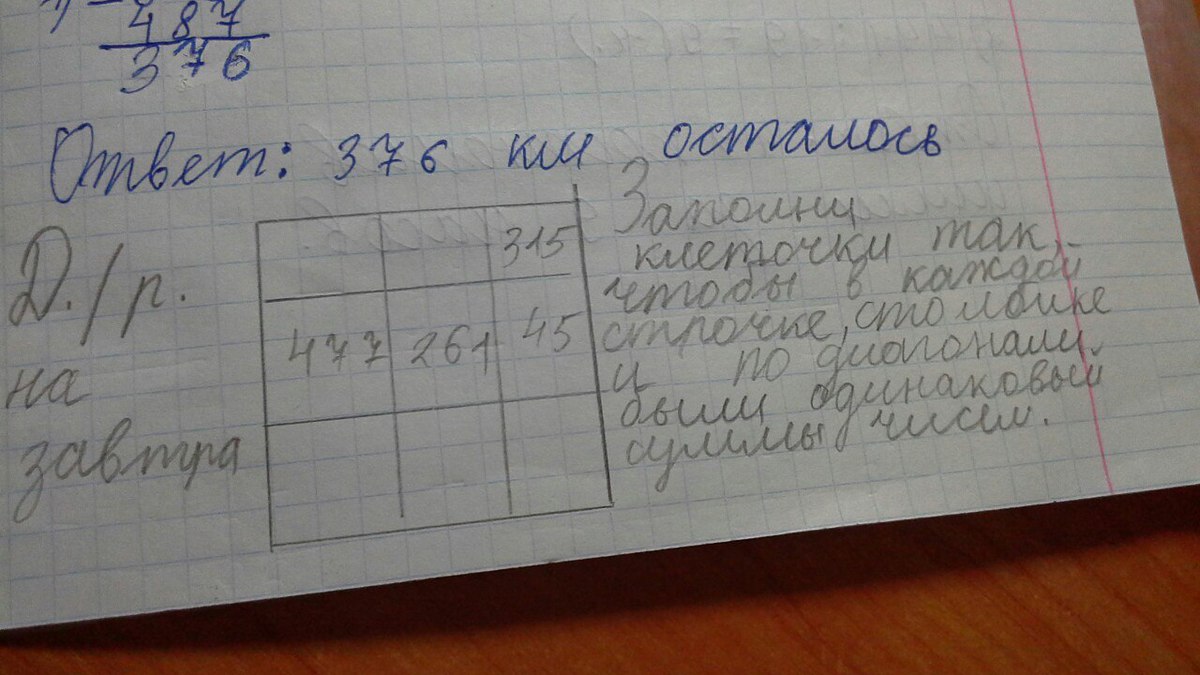 1)
487
376
Ответ: 376 км осталось
Д./р.
на
завтра
315
477 261 45
Заполни
клеточки так,
чтобы в каждой
строчке, столбике
и по диагонали
были одинаковый
суммы чисел.